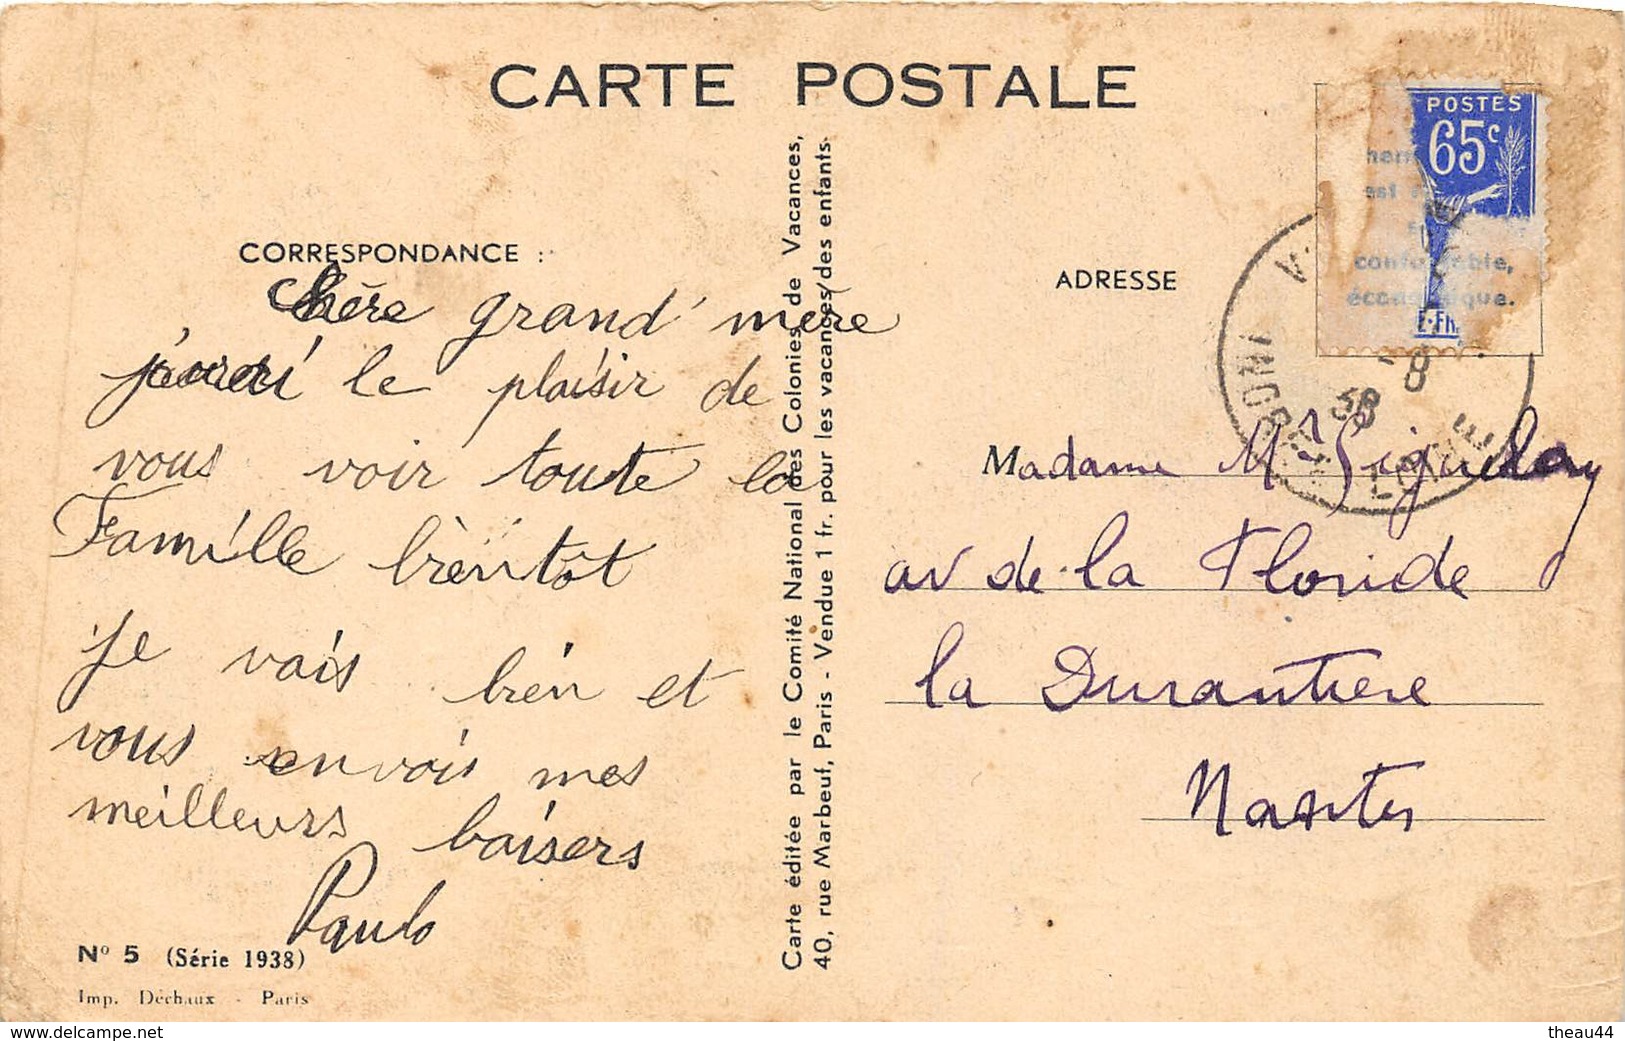 CARTE POSTALE
POSTES
65c
est
confortable,
économique.
CORRESPONDANCE :
Chère grand' mère
j'aurai le plaisir de
vous voir toute la
Famille bientôt
je vais bien et
vous envois mes
meilleurs baisers
Paulo
Nº 5 (Série 1938)
Imp. Déchaux - Paris
Carte éditée par le Comité National des Colonies de Vacances,
40, rue Marbeuf, Paris - Vendue 1 fr. pour les vacances des enfants.
ADRESSE
-8
38
Madame
av de la Floride
la Durantiere
Nantes
www.delcampe.net
theau44